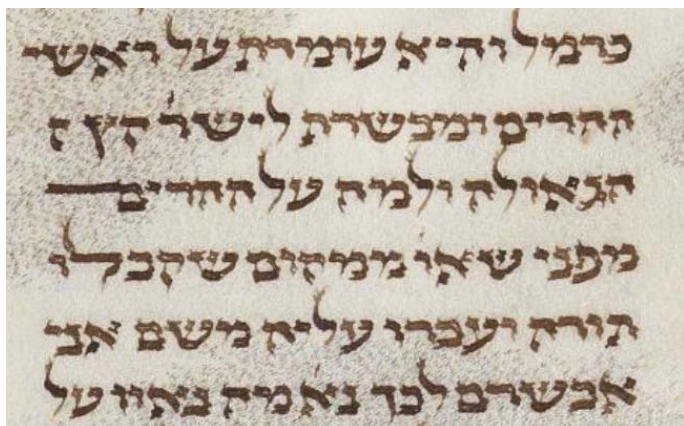 כרמל והיא עומדת על ראשי
ההרים ומבשרת לישר' הקץ ה
הגאולה ולמה על ההרים
מפני שאו' ממקום שקבלו
תורה ועברו עליה משם אני
אבשרם לכך נא' מה נאוו על